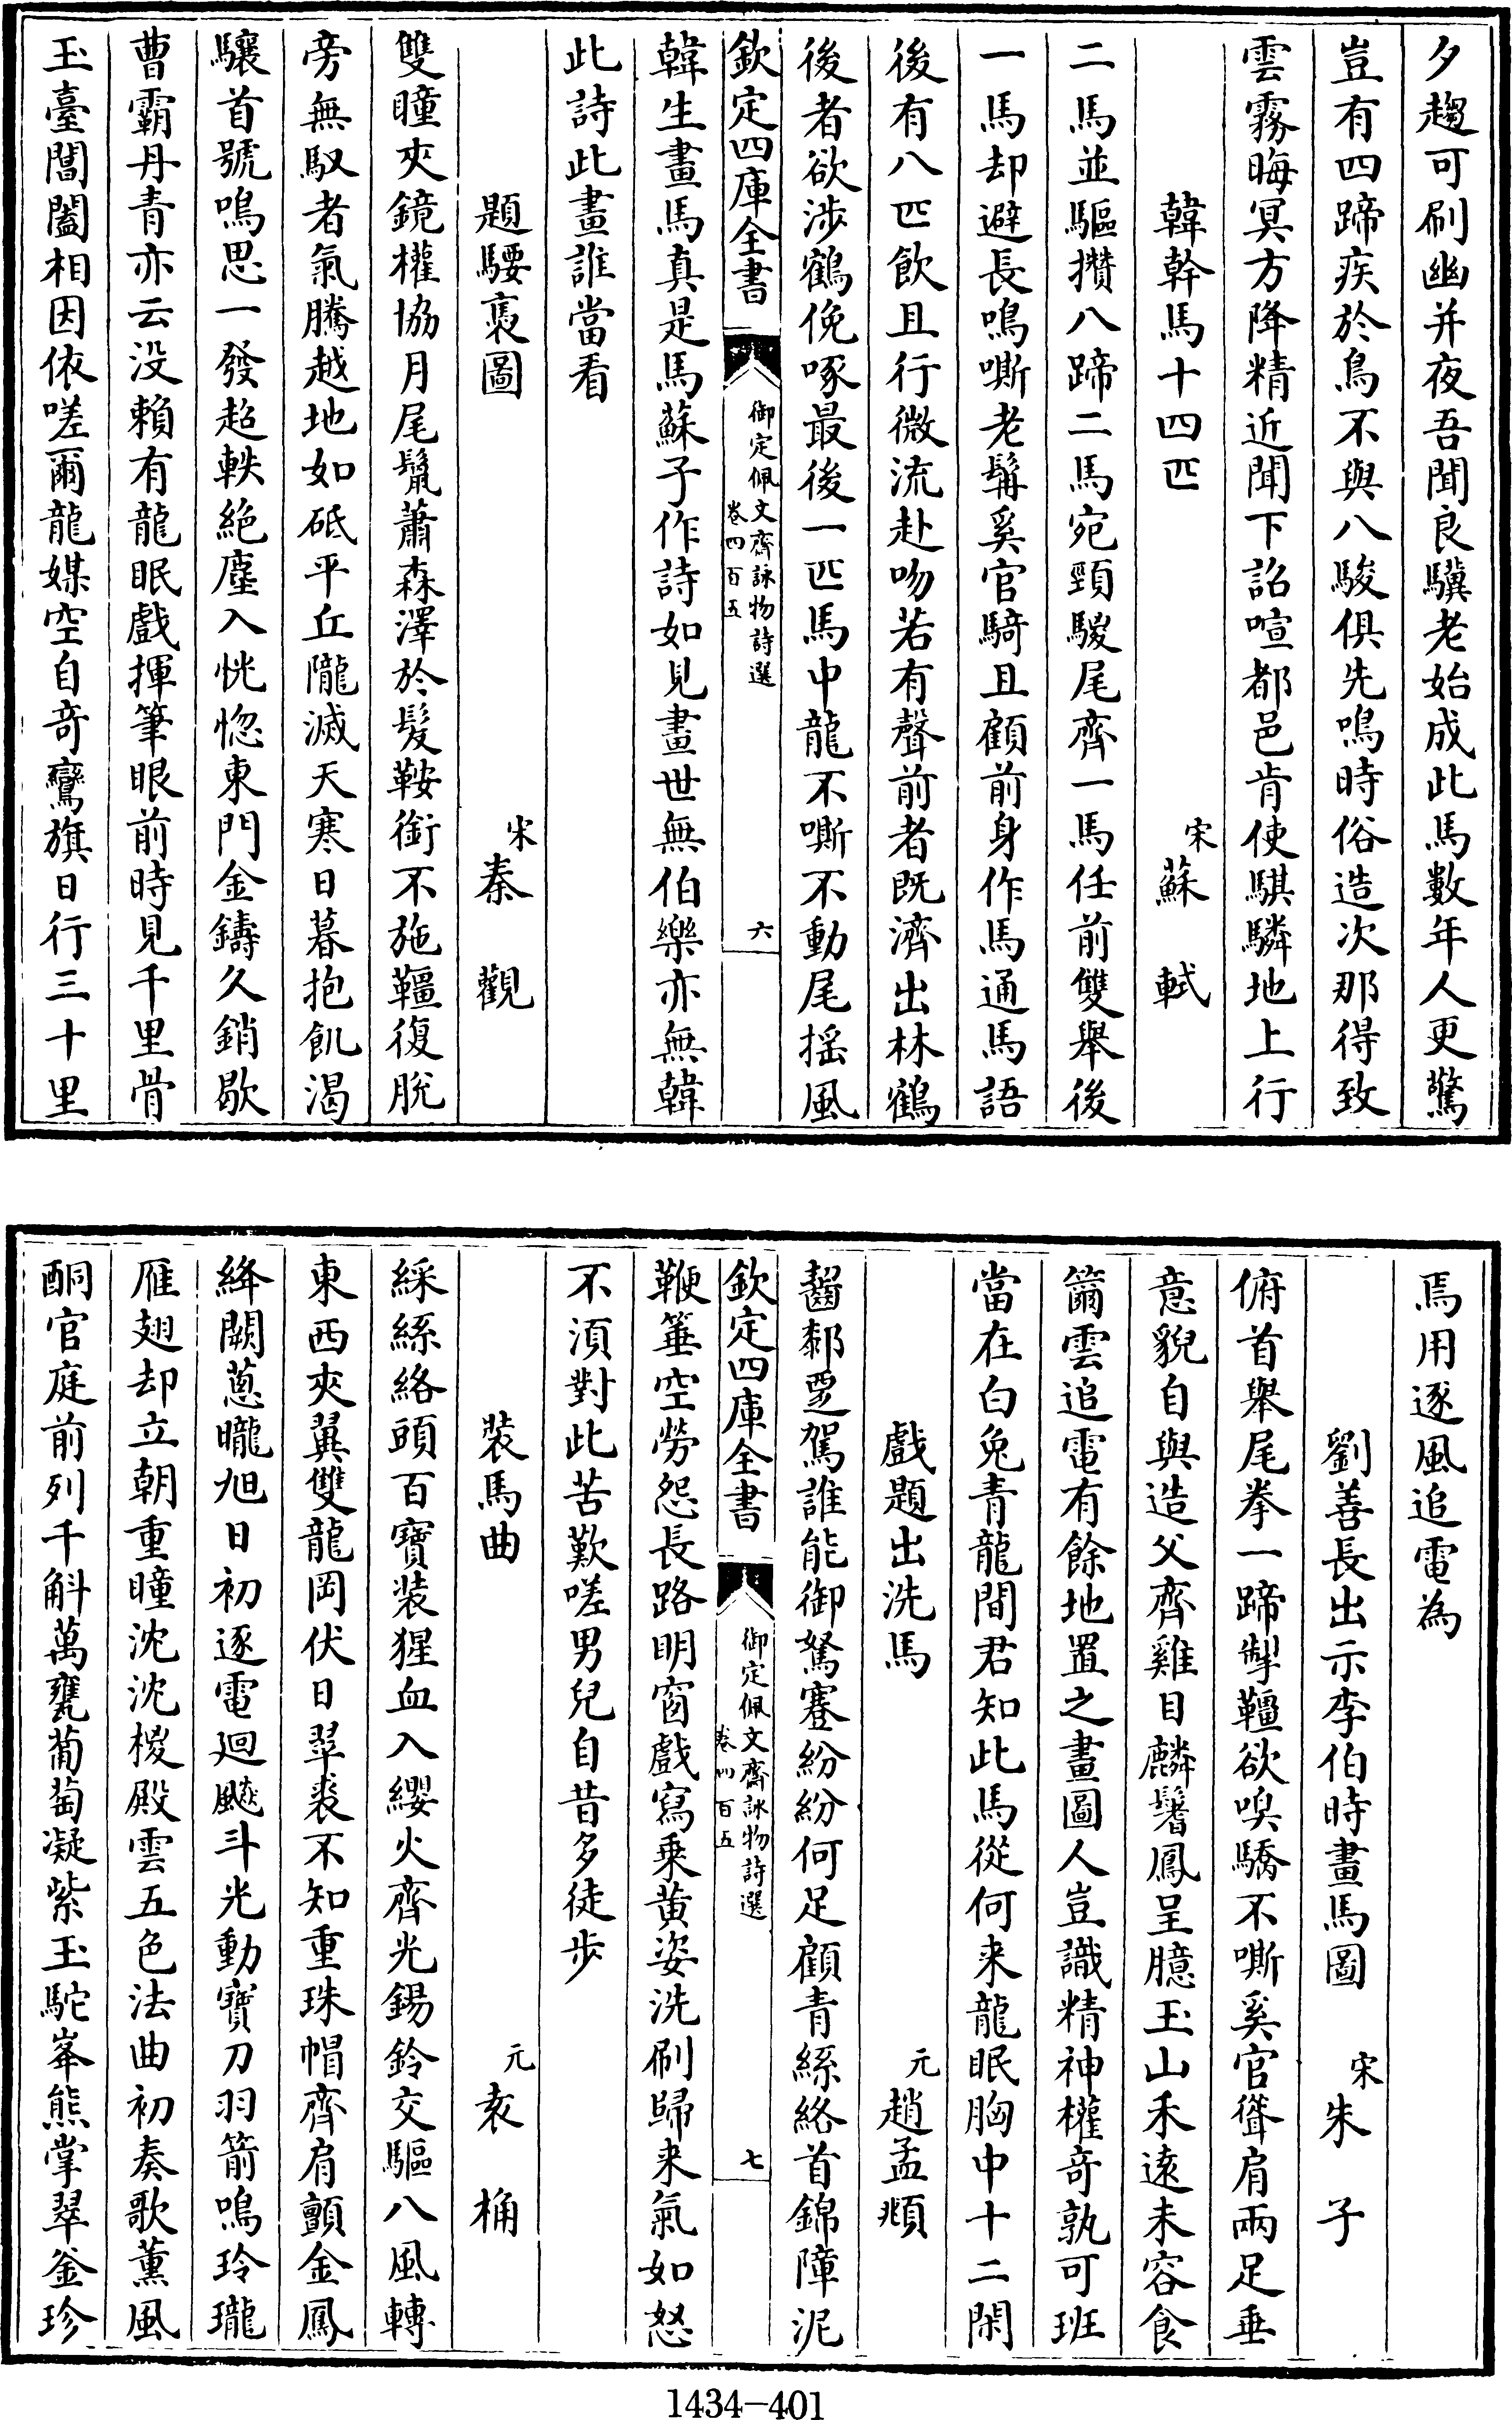 夕趨可刷幽并夜吾聞良驥老始成此馬數年人更驚
豈有四蹄疾於鳥不與八駿俱先鳴時俗造次那得致
雲霧晦冥方降精近聞下詔喧都邑肯使騏驎地上行
韓幹馬十四匹 宋蘇軾
二馬並驅攢八蹄二馬宛頸騣尾齊一馬任前雙舉後
一馬却避長鳴嘶老髯奚官騎且顧前身作馬通馬語
後有八匹飲且行微流赴吻若有聲前者既濟出林鶴
後者欲涉鶴俛啄最後一匹馬中龍不嘶不動尾搖風
欽定四庫全書 御定佩文齋詠物詩選 卷四百五 六
韓生畫馬真是馬蘇子作詩如見畫世無伯樂亦無韓
此詩此畫誰當看
題騕褭圖 宋秦觀
雙瞳夾鏡權協月尾鬛蕭森澤於髮鞍銜不施韁復脫
旁無馭者氣騰越地如砥平丘隴滅天寒日暮抱飢渴
驤首號鳴思一發超軼絕塵入恍惚東門金鑄久銷歇
曹霸丹青亦云没賴有龍眠戲揮筆眼前時見千里骨
玉臺閶闔相因依嗟爾龍媒空自奇鸞旗日行三十里
焉用逐風追電為
劉善長出示李伯時畫馬圖 宋朱子
俯首舉尾拳一蹄掣韁欲嗅驕不嘶奚官聳肩兩足垂
意貌自與造父齊雞目麟鬐鳳呈臆玉山禾遠未容食
籋雲追電有餘地置之畫圖人豈識精神權奇孰可班
當在白兔青龍間君知此馬從何来龍眠胸中十二閑
戲題出洗馬 元趙孟頫
齧鄰覂駕誰能御駑蹇紛紛何足顧青絲絡首錦障泥
欽定四庫全書 御定佩文齋詠物詩選 卷四百五 七
鞭箠空勞怨長路明窗戲寫乗黃姿洗刷歸来氣如怒
不須對此苦歎嗟男兒自昔多徒步
裝馬曲 元袁桷
綵絲絡頭百寶裝猩血入纓火齊光錫鈴交驅八風轉
東西夾翼雙龍岡伏日翠裘不知重珠帽齊肩顫金鳳
絳闕蔥曨旭日初逐電廻飈斗光動寶刀羽箭鳴玲瓏
雁翅却立朝重瞳沈沈椶殿雲五色法曲初奏歌薰風
酮官庭前列千斛萬甕葡萄凝紫玉駝峯熊掌翠釜珍
1434-401